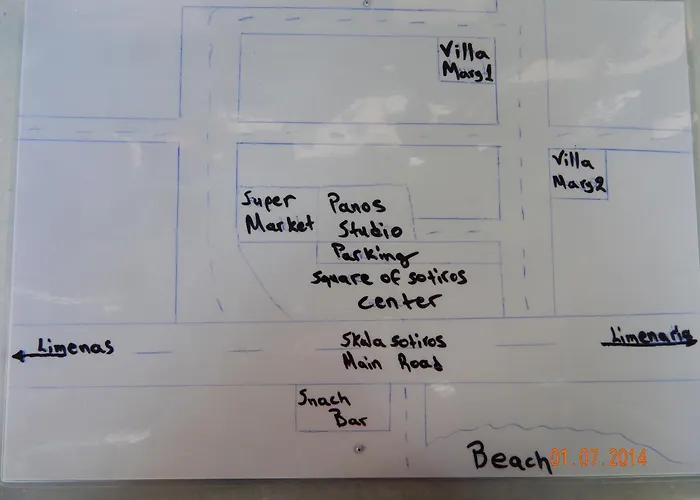 Villa
Marg1
Villa
Marg2
Super
Market
Panos
Studio
Parking
Square of sotiros
center
Limenas
Skala sotiros
Main Road
Limenaria
Snach
Bar
Beach
01.07.2014